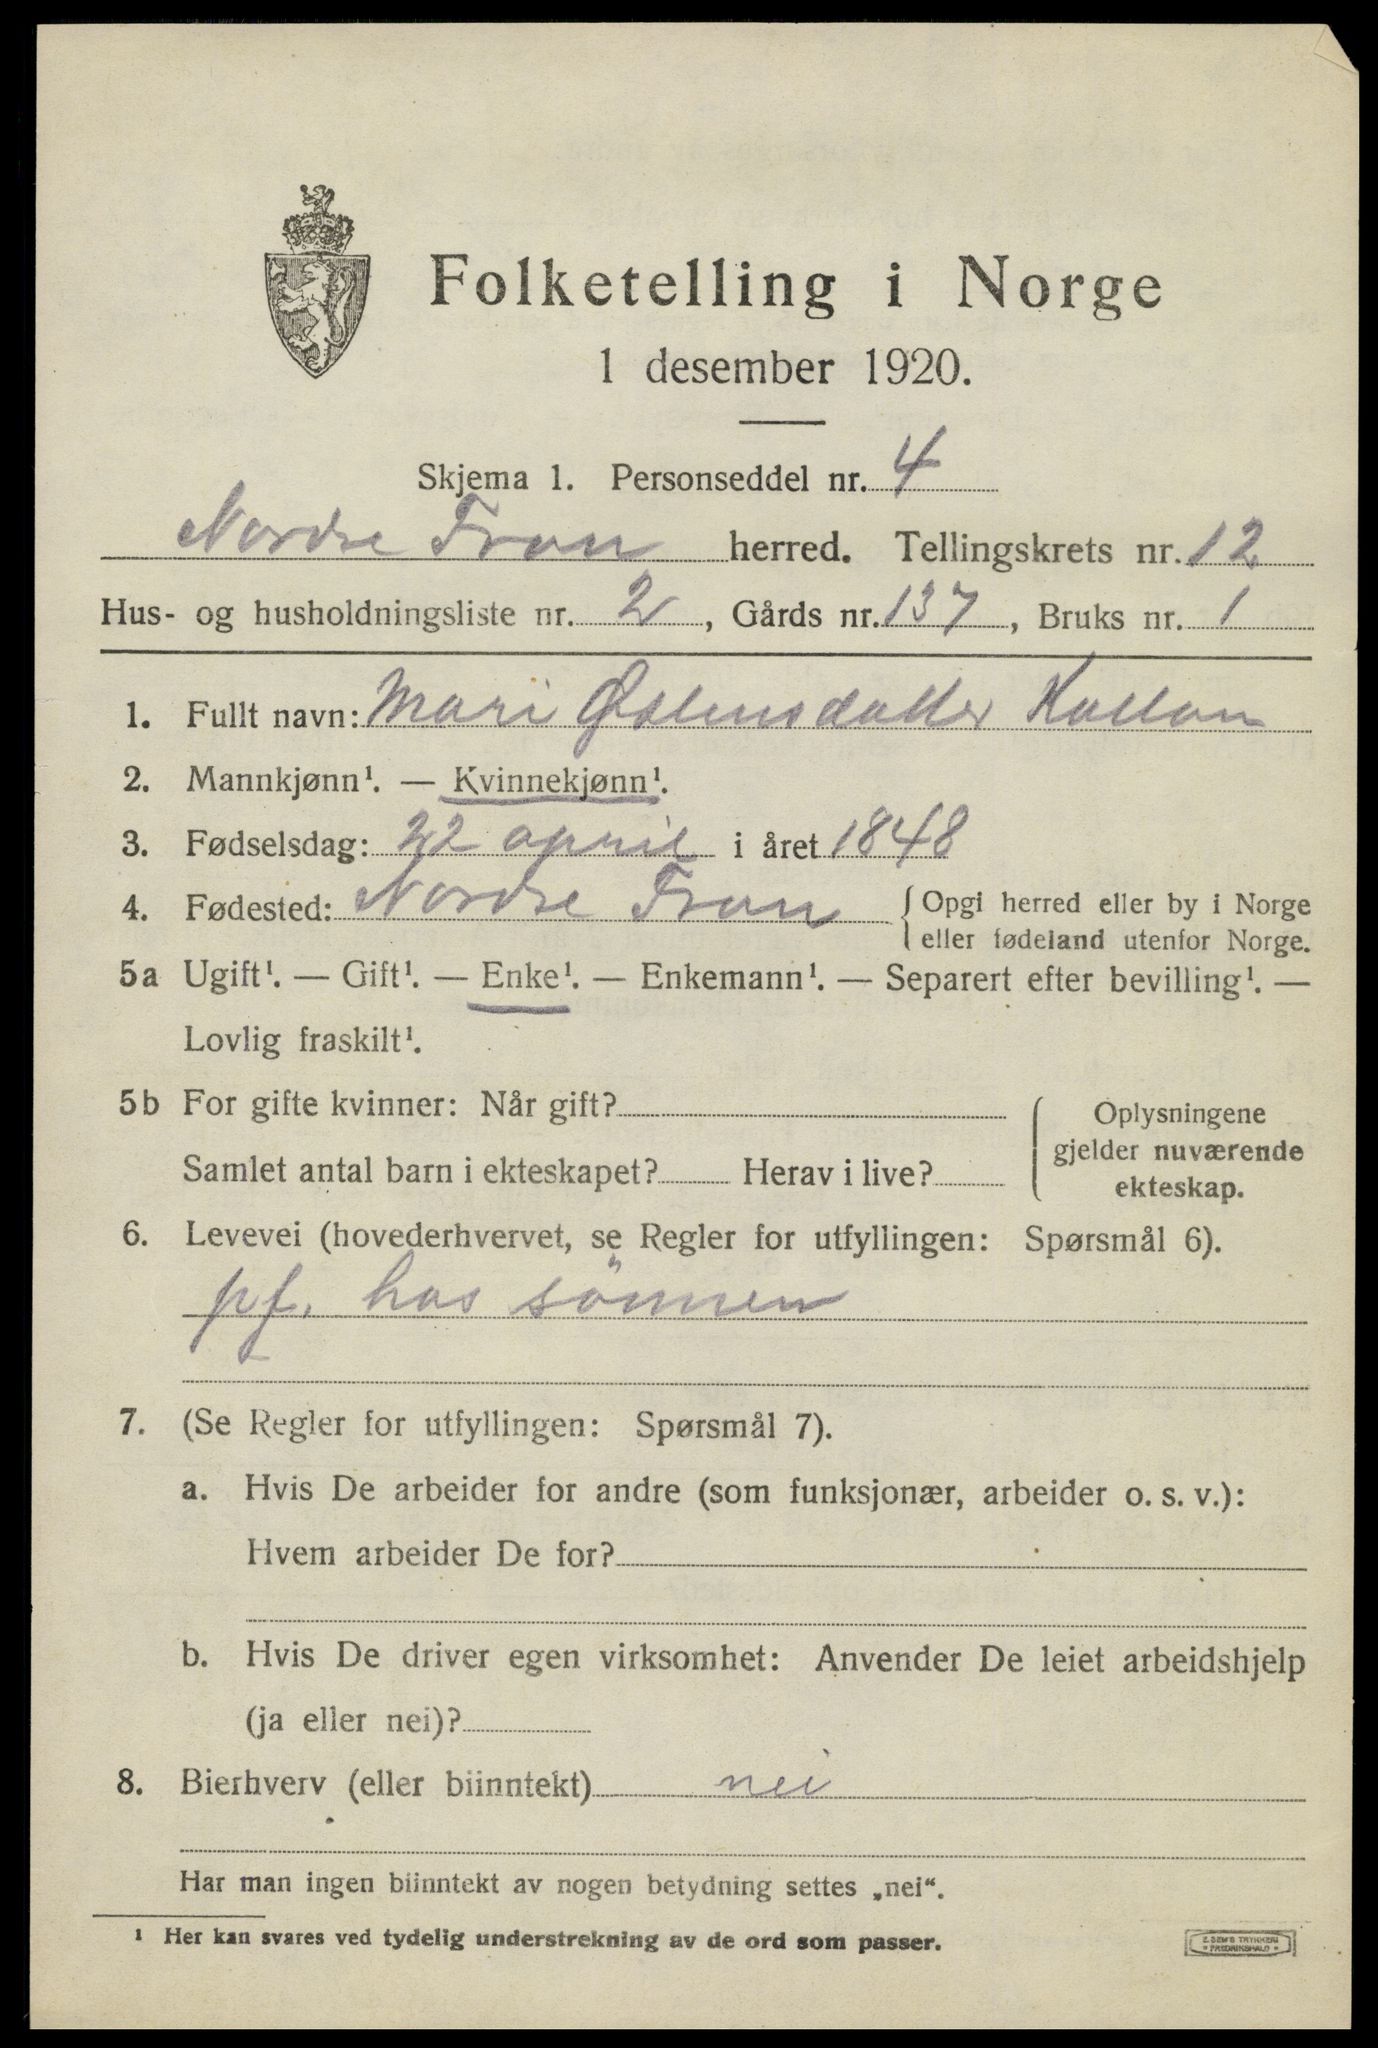 Folketelling i Norge
1 desember 1920.
Skjema 1. Personseddel nr. 4
Nordre Fron herred. Tellingskrets nr. 12
Hus- og husholdningsliste nr. 2, Gårds nr. 137, Bruks nr. 1
1. Fullt navn: Mari Østensdatter
2. Mannkjønn¹. — Kvinnekjønn¹.
3. Fødselsdag: 22 april i året 1848
4. Fødested: Nordre Fron { Opgi herred eller by i Norge
eller fødeland utenfor Norge.
5a Ugift¹. — Gift¹. — Enke¹. — Enkemann¹. — Separert efter bevilling¹. —
Lovlig fraskilt¹.
5b For gifte kvinner: Når gift?
Samlet antal barn i ekteskapet? Herav i live?
Oplysningene
gjelder nuværende
ekteskap.
6. Levevei (hovederhvervet, se Regler for utfyllingen: Spørsmål 6).
pf. hos sönnen
7. (Se Regler for utfyllingen: Spørsmål 7).
a. Hvis De arbeider for andre (som funksjonær, arbeider o. s. v.):
Hvem arbeider De for?
b. Hvis De driver egen virksomhet: Anvender De leiet arbeidshjelp
(ja eller nei)?
8. Bierhverv (eller biinntekt) nei
Har man ingen biinntekt av nogen betydning settes „nei“.
¹ Her kan svares ved tydelig understrekning av de ord som passer.
E. SEM'S TRYKKERI
* FREDRIKSHALD *